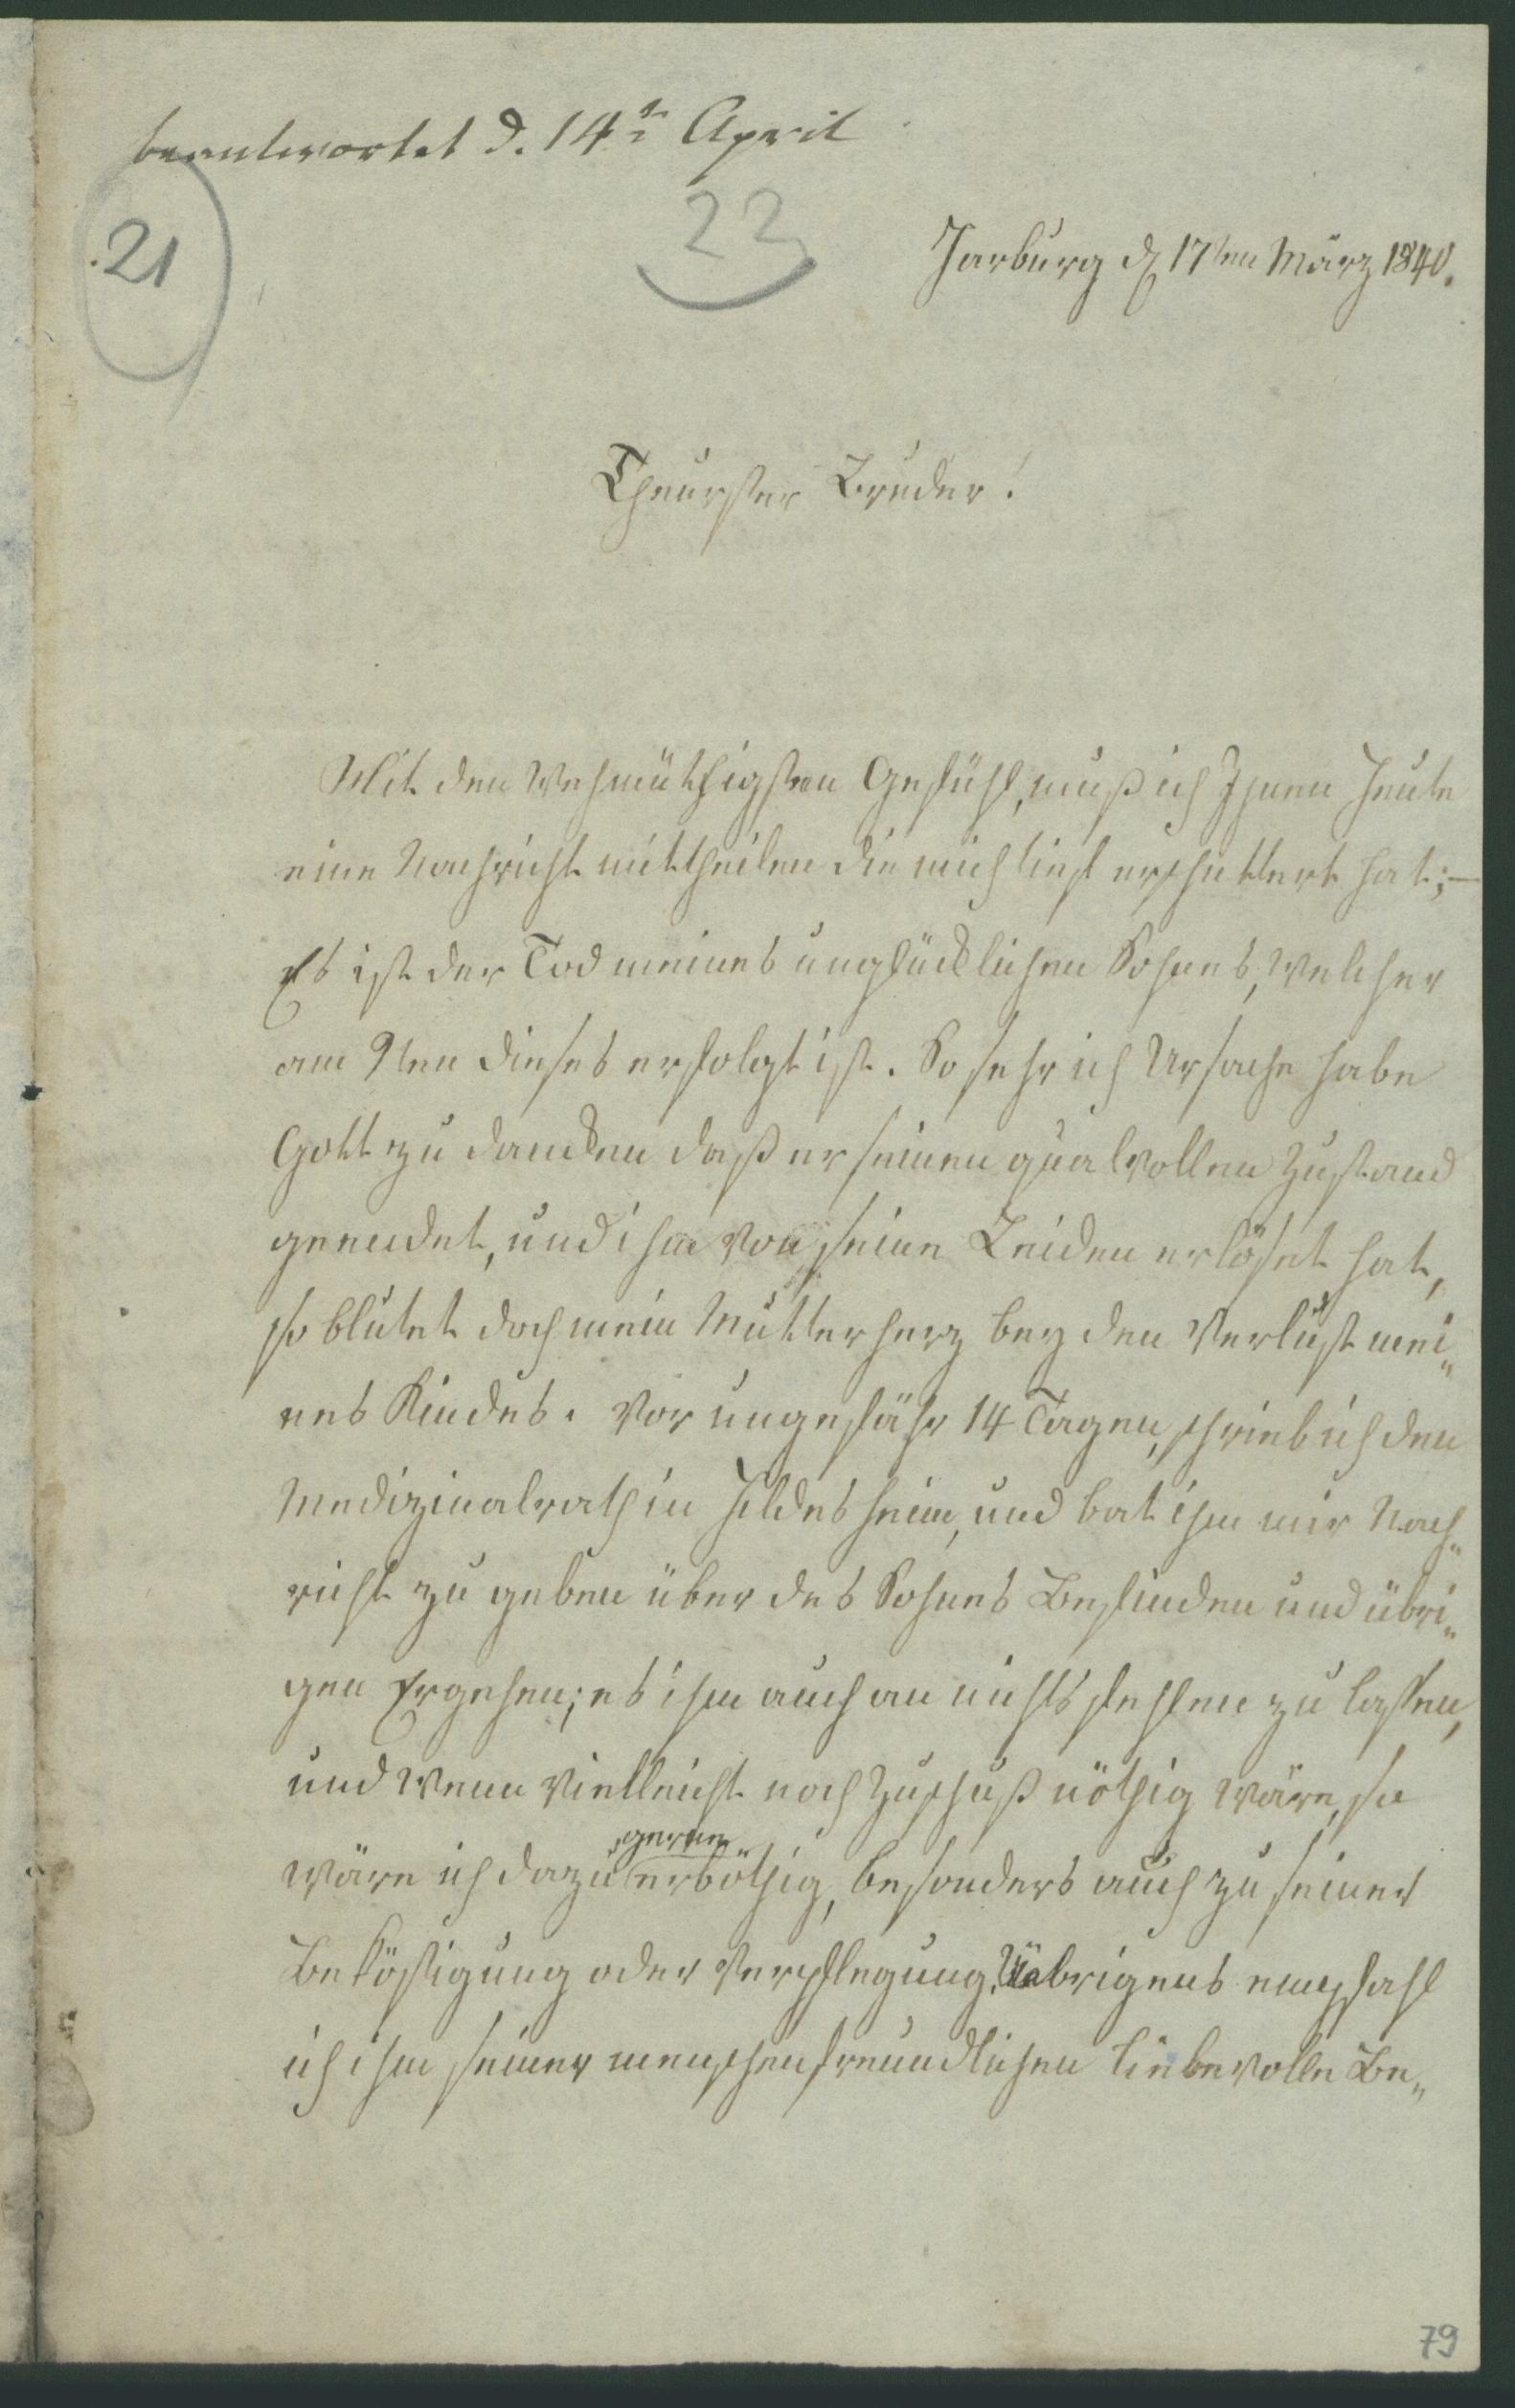 beantwortet d. 14ⁿ April
21
23
Harburg d 17ten März 1840.
Theurster Bruder!
Mit den Wehmüthigsten Gefühl, muß ich Ihnen heute
eine Nachricht mittheilen die mich tief erschuttert hat;—
Es ist der Tod meines unglücklichen Sohnes, welcher
am 9ten dieses erfolgt ist. So sehr ich Ursache habe
Gott zu dancken daß er seinen qualvollen Zustand
geendet, und ihm von seine Leiden erlöset hat,
so blutet doch mein Mutterherz bey den Verlust mei„
nes Kindes. Vor ungefähr 14 Tagen, schrieb ich den
Medizinalrath in Hildesheim, und bat ihm mir Nach„
richt zu geben über des Sohnes Befinden und übri„
gen Ergehen; es ihm auch an nichts fehlen zu lassen,
und wenn vielleicht noch Zuschuß nöthig wäre, so
wäre ich dazu gerne erböthig, besonders auch zu seiner
Beköstigung oder Verpflegung. Uebrigens empfahl
ich ihm seiner menschenfreundlichen liebevolle Be„
79